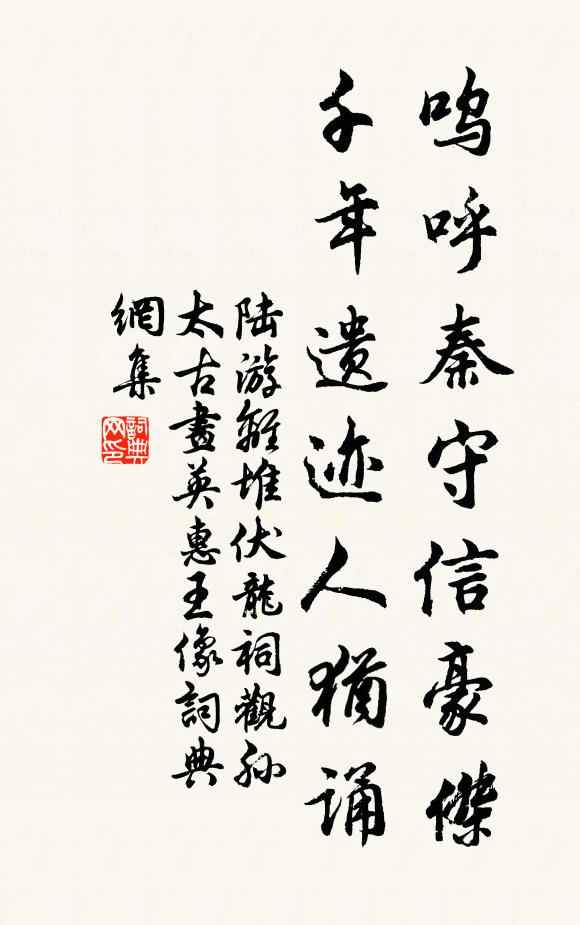 嗚呼秦守信豪傑
千年遺迹人猶誦
陆游離堆伏龍祠觀孙
太古畫英惠王像詞典
網集
詞典
网印